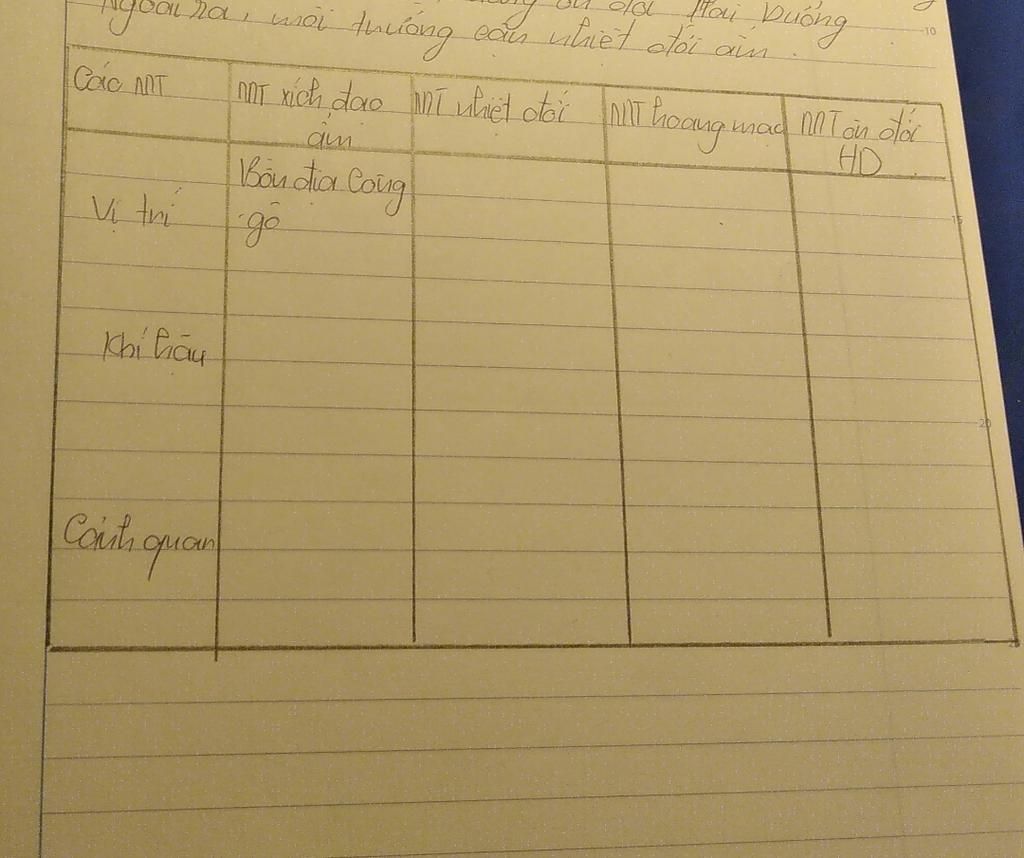 ôn đới Hải Dương
Ngoài ra, môi trường cận nhiệt đới ẩm.
10
Các MT
MT xích đạo ẩm
MT nhiệt đới
MT hoang mạc
MT ôn đới HD
Vị trí
Bồn địa Công gô
15
Khí hậu
20
Cảnh quan